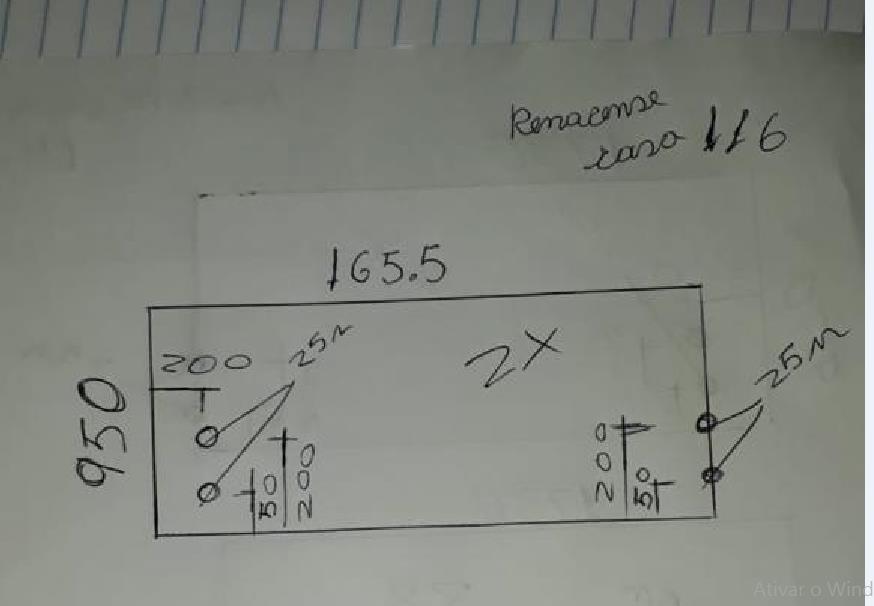 Renacense
casa 116
165.5
200
25M
2X
25M
950
50
200
200
50
Ativar o Wind